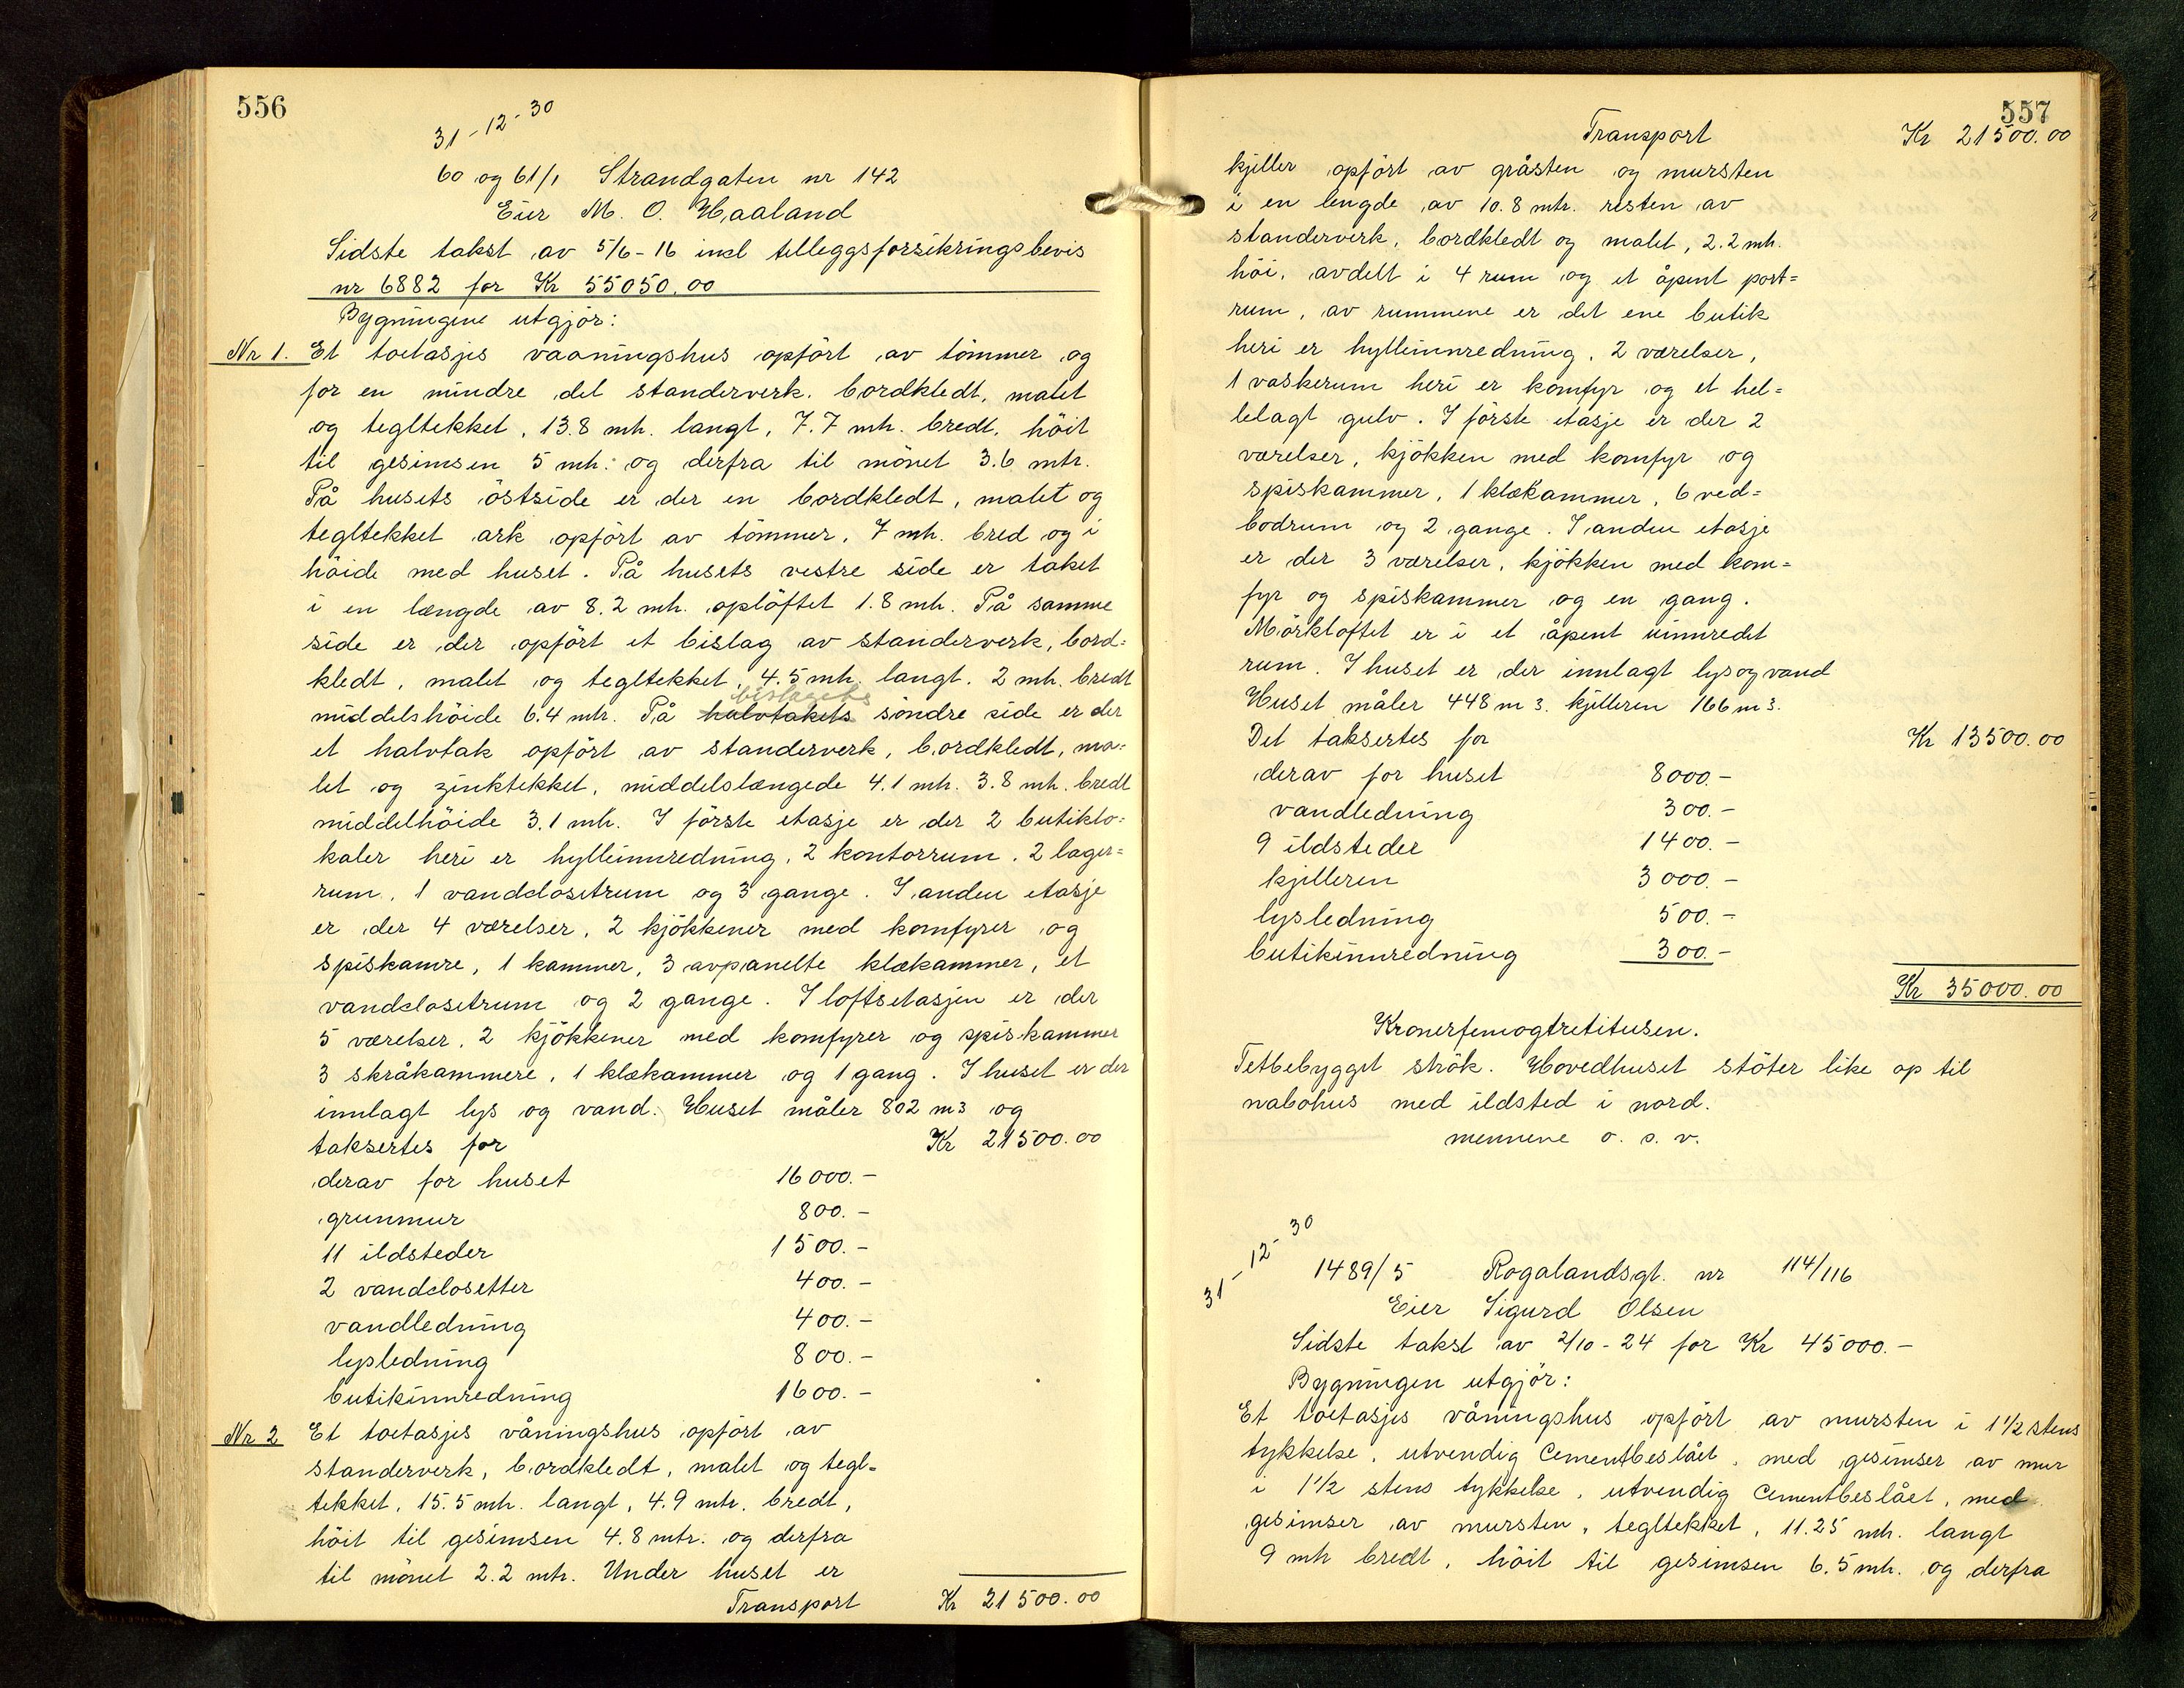 556
31-12-30
60 og 61/1 Strandgaten nr 142
Eier M. O. Haaland
Sidste takst av 5/6-16 incl tilleggsforsikringsbevis
nr 6882 for Kr 55050.00
Bygningene utgjör:
Nr 1. Et toetasjes vaaningshus opfört av tömmer og
for en mindre del standerverk. bordkledt, malet
og tegltekket, 13.8 mtr. langt, 7.7 mtr. bredt, höit
til gesimsen 5 mtr. og derfra til mönet 3.6 mtr.
På husets östside er der en bordkledt, malet og
tegltekket ark opfört av tömmer, 7 mtr. bred og i
höide med huset. På husets vestre side er taket
i en længde av 8.2 mtr. oplöftet 1.8 mtr. På samme
side er der opfört et bislag av standerverk, bord=
kledt, malet og tegltekket, 4.5 mtr. langt. 2 mtr. bredt
bislagets
middelshöide 6.4 mtr. På halvtakets söndre side er der
et halvtak opfört av standerverk, bordkledt, ma=
let og zinktekket, middelslængede 4.1 mtr. 3.8 mtr. bredt
middelhöide 3.1 mtr. I förste etasje er der 2 butiklo=
kaler heri er hylleinnredning, 2 kontorrum. 2 lager=
rum, 1 vandclosetrum og 3 gange. I anden etasje
er der 4 værelser, 2 kjökkener med komfyrer og
spiskamre, 1 kammer, 3 avpanelte klækammer, et
vandclosetrum og 2 gange. I loftsetasjen er der
5 værelser, 2 kjökkener med komfyrer og spiskammer
3 skråkammere, 1 klækammer og 1 gang. I huset er der
innlagt lys og vand. Huset måler 802 m3 og
taksertes for Kr 21500.00
derav for huset 16000.-
grunmur 800.-
11 ildsteder 1500.-
2 vandclosetter 400.-
vandledning 400.-
lysledning 800.-
butikinnredning 1600.-
Nr 2 Et toetasjes våningshus opfört av
standerverk, bordkledt, malet og tegl-
tekket, 15.5 mtr. langt, 4.9 mtr. bredt,
höit til gesimsen 4.8 mtr. og derfra
til mönet 2.2 mtr. Under huset er
Transport Kr 21500.00
557
Transport Kr 21500.00
kjeller opfört av gråsten og mursten
i en lengde av 10.8 mtr. resten av
standerverk, bordkledt og malet, 2.2 mtr.
höi, avdelt i 4 rum og et åpent port=
rum, av rummene er det ene butik
heri er hylleinnredning, 2 værelser,
1 vaskerum heri er komfyr og et hel=
lelagt gulv. I förste etasje er der 2
værelser, kjökken med komfyr og
spiskammer, 1 klækammer, 6 ved=
bodrum og 2 gange. I anden etasje
er der 3 værelser, kjökken med kom=
fyr og spiskammer og en gang.
Mörkloftet er i et åpent uinnredet
rum. I huset er der innlagt lys og vand
Huset måler 448 m3. kjelleren 166 m3.
Det taksertes for Kr 13500.00
derav for huset 8000.-
vandledning 300.-
9 ildsteder 1400.-
kjelleren 3000.-
lysledning 500.-
butikinnredning 300.-
Kr 35000.00
Kronerfemogtretitusen.
Tettbebygget strök. Hovedhuset stöter like op til
nabohus med ildsted i nord.
mennene o. s. v.
31-12-30
1489/5 Rogalandsgt. nr 114/116
Eier Sigurd Olsen
Sidste takst av 2/10-24 for Kr 45000.-
Bygningen utgjör:
Et toetasjes våningshus opfört av mursten i 1 1/2 stens
tykkelse, utvendig Cementbeslået, med gesimser av mur
i 1 1/2 stens tykkelse, utvendig Cementbeslået, med
gesimser av mursten, tegltekket, 11.25 mtr. langt
9 mtr bredt, höit til gesimsen 6.5 mtr. og derfra